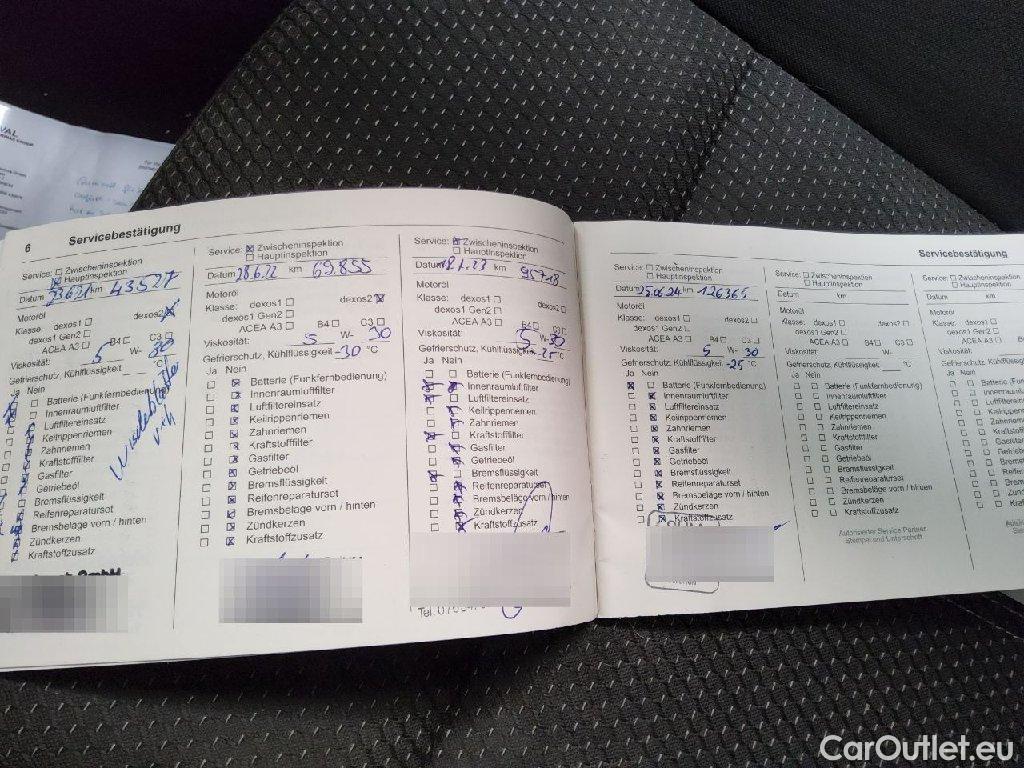 VAL
6 Servicebestätigung
Service: Zwischeninspektion
Hauptinspektion
Datum 23.6.21 km 43527
Motoröl
Klasse: dexos1 dexos2
dexos1 Gen2
ACEA A3 B4 C3
Viskosität: 5 W- 30
Gefrierschutz, Kühlflüssigkeit °C
Ja Nein
Batterie (Funkfernbedienung)
Innenraumluftfilter
Luftfiltereinsatz
Keilrippenriemen
Zahnriemen
Kraftstofffilter
Gasfilter
Getriebeöl
Bremsflüssigkeit
Reifenreparaturset
Bremsbeläge vorn / hinten
Zündkerzen
Kraftstoffzusatz
Service: Zwischeninspektion
Hauptinspektion
Datum 28.6.22 km 69.855
Motoröl
Klasse: dexos1 dexos2
dexos1 Gen2
ACEA A3 B4 C3
Viskosität: 5 W- 30
Gefrierschutz, Kühlflüssigkeit -30 °C
Ja Nein
Batterie (Funkfernbedienung)
Innenraumluftfilter
Luftfiltereinsatz
Keilrippenriemen
Zahnriemen
Kraftstofffilter
Gasfilter
Getriebeöl
Bremsflüssigkeit
Reifenreparaturset
Bremsbeläge vorn / hinten
Zündkerzen
Kraftstoffzusatz
Service: Zwischeninspektion
Hauptinspektion
Datum km 95718
Motoröl
Klasse: dexos1 dexos2
dexos1 Gen2
ACEA A3 B4 C3
Viskosität: 5 W- 30
Gefrierschutz, Kühlflüssigkeit -25 °C
Ja Nein
Batterie (Funkfernbedienung)
Innenraumluftfilter
Luftfiltereinsatz
Keilrippenriemen
Zahnriemen
Kraftstofffilter
Gasfilter
Getriebeöl
Bremsflüssigkeit
Reifenreparaturset
Bremsbeläge vorn / hinten
Zündkerzen
Kraftstoffzusatz
Tel.
Servicebestätigung
Service: Zwischeninspektion
Hauptinspektion
Datum 25.06.24 km 126365
Motoröl
Klasse: dexos1 dexos2
dexos1 Gen2
ACEA A3 B4 C3
Viskosität: 5 W- 30
Gefrierschutz, Kühlflüssigkeit -25 °C
Ja Nein
Batterie (Funkfernbedienung)
Innenraumluftfilter
Luftfiltereinsatz
Keilrippenriemen
Zahnriemen
Kraftstofffilter
Gasfilter
Getriebeöl
Bremsflüssigkeit
Reifenreparaturset
Bremsbeläge vorn / hinten
Zündkerzen
Kraftstoffzusatz
Service: Zwischeninspektion
Hauptinspektion
Datum km
Motoröl
Klasse: dexos1 dexos2
dexos1 Gen2
ACEA A3 B4 C3
Viskosität: W-
Gefrierschutz, Kühlflüssigkeit °C
Ja Nein
Batterie (Funkfernbedienung)
Innenraumluftfilter
Luftfiltereinsatz
Keilrippenriemen
Zahnriemen
Kraftstofffilter
Gasfilter
Getriebeöl
Bremsflüssigkeit
Reifenreparaturset
Bremsbeläge vorn / hinten
Zündkerzen
Kraftstoffzusatz
Autorisierter Service Partner
Stempel und Unterschrift
Service:
Datum
Motoröl
Klasse: dexos1
dexos1 Gen2
ACEA A3
Viskosität:
Gefrierschutz, Kühlflüssigkeit
Ja Nein
CarOutlet.eu